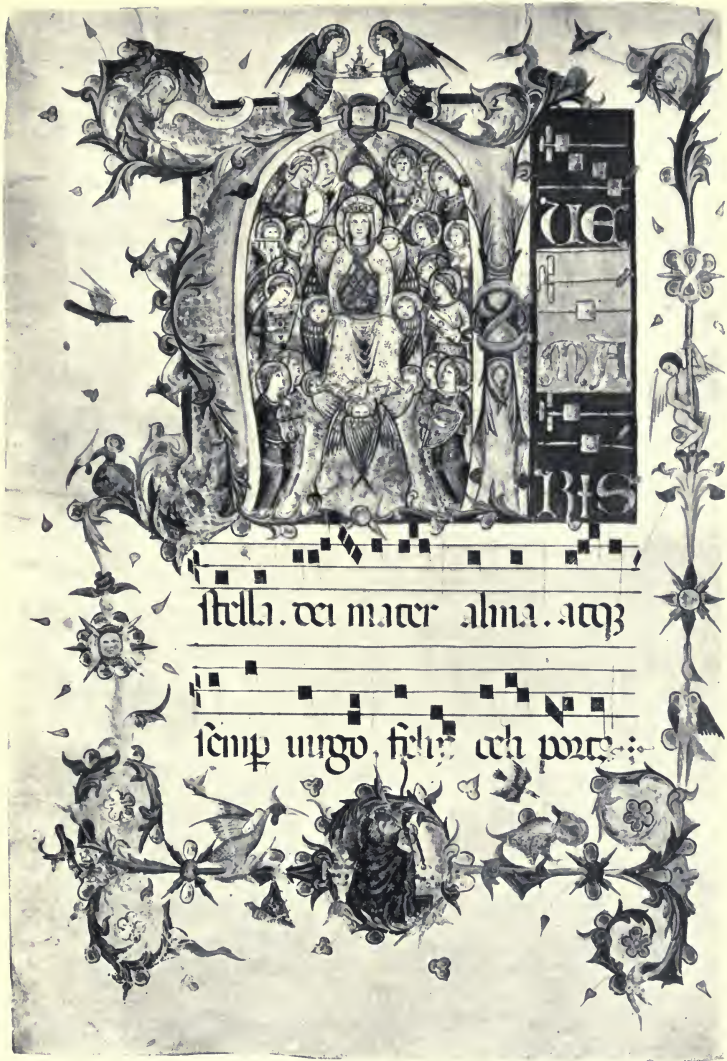 AUE
MA
RIS
stella. dei mater alma. atqȝ
semꝑ uirgo. felix celi porta